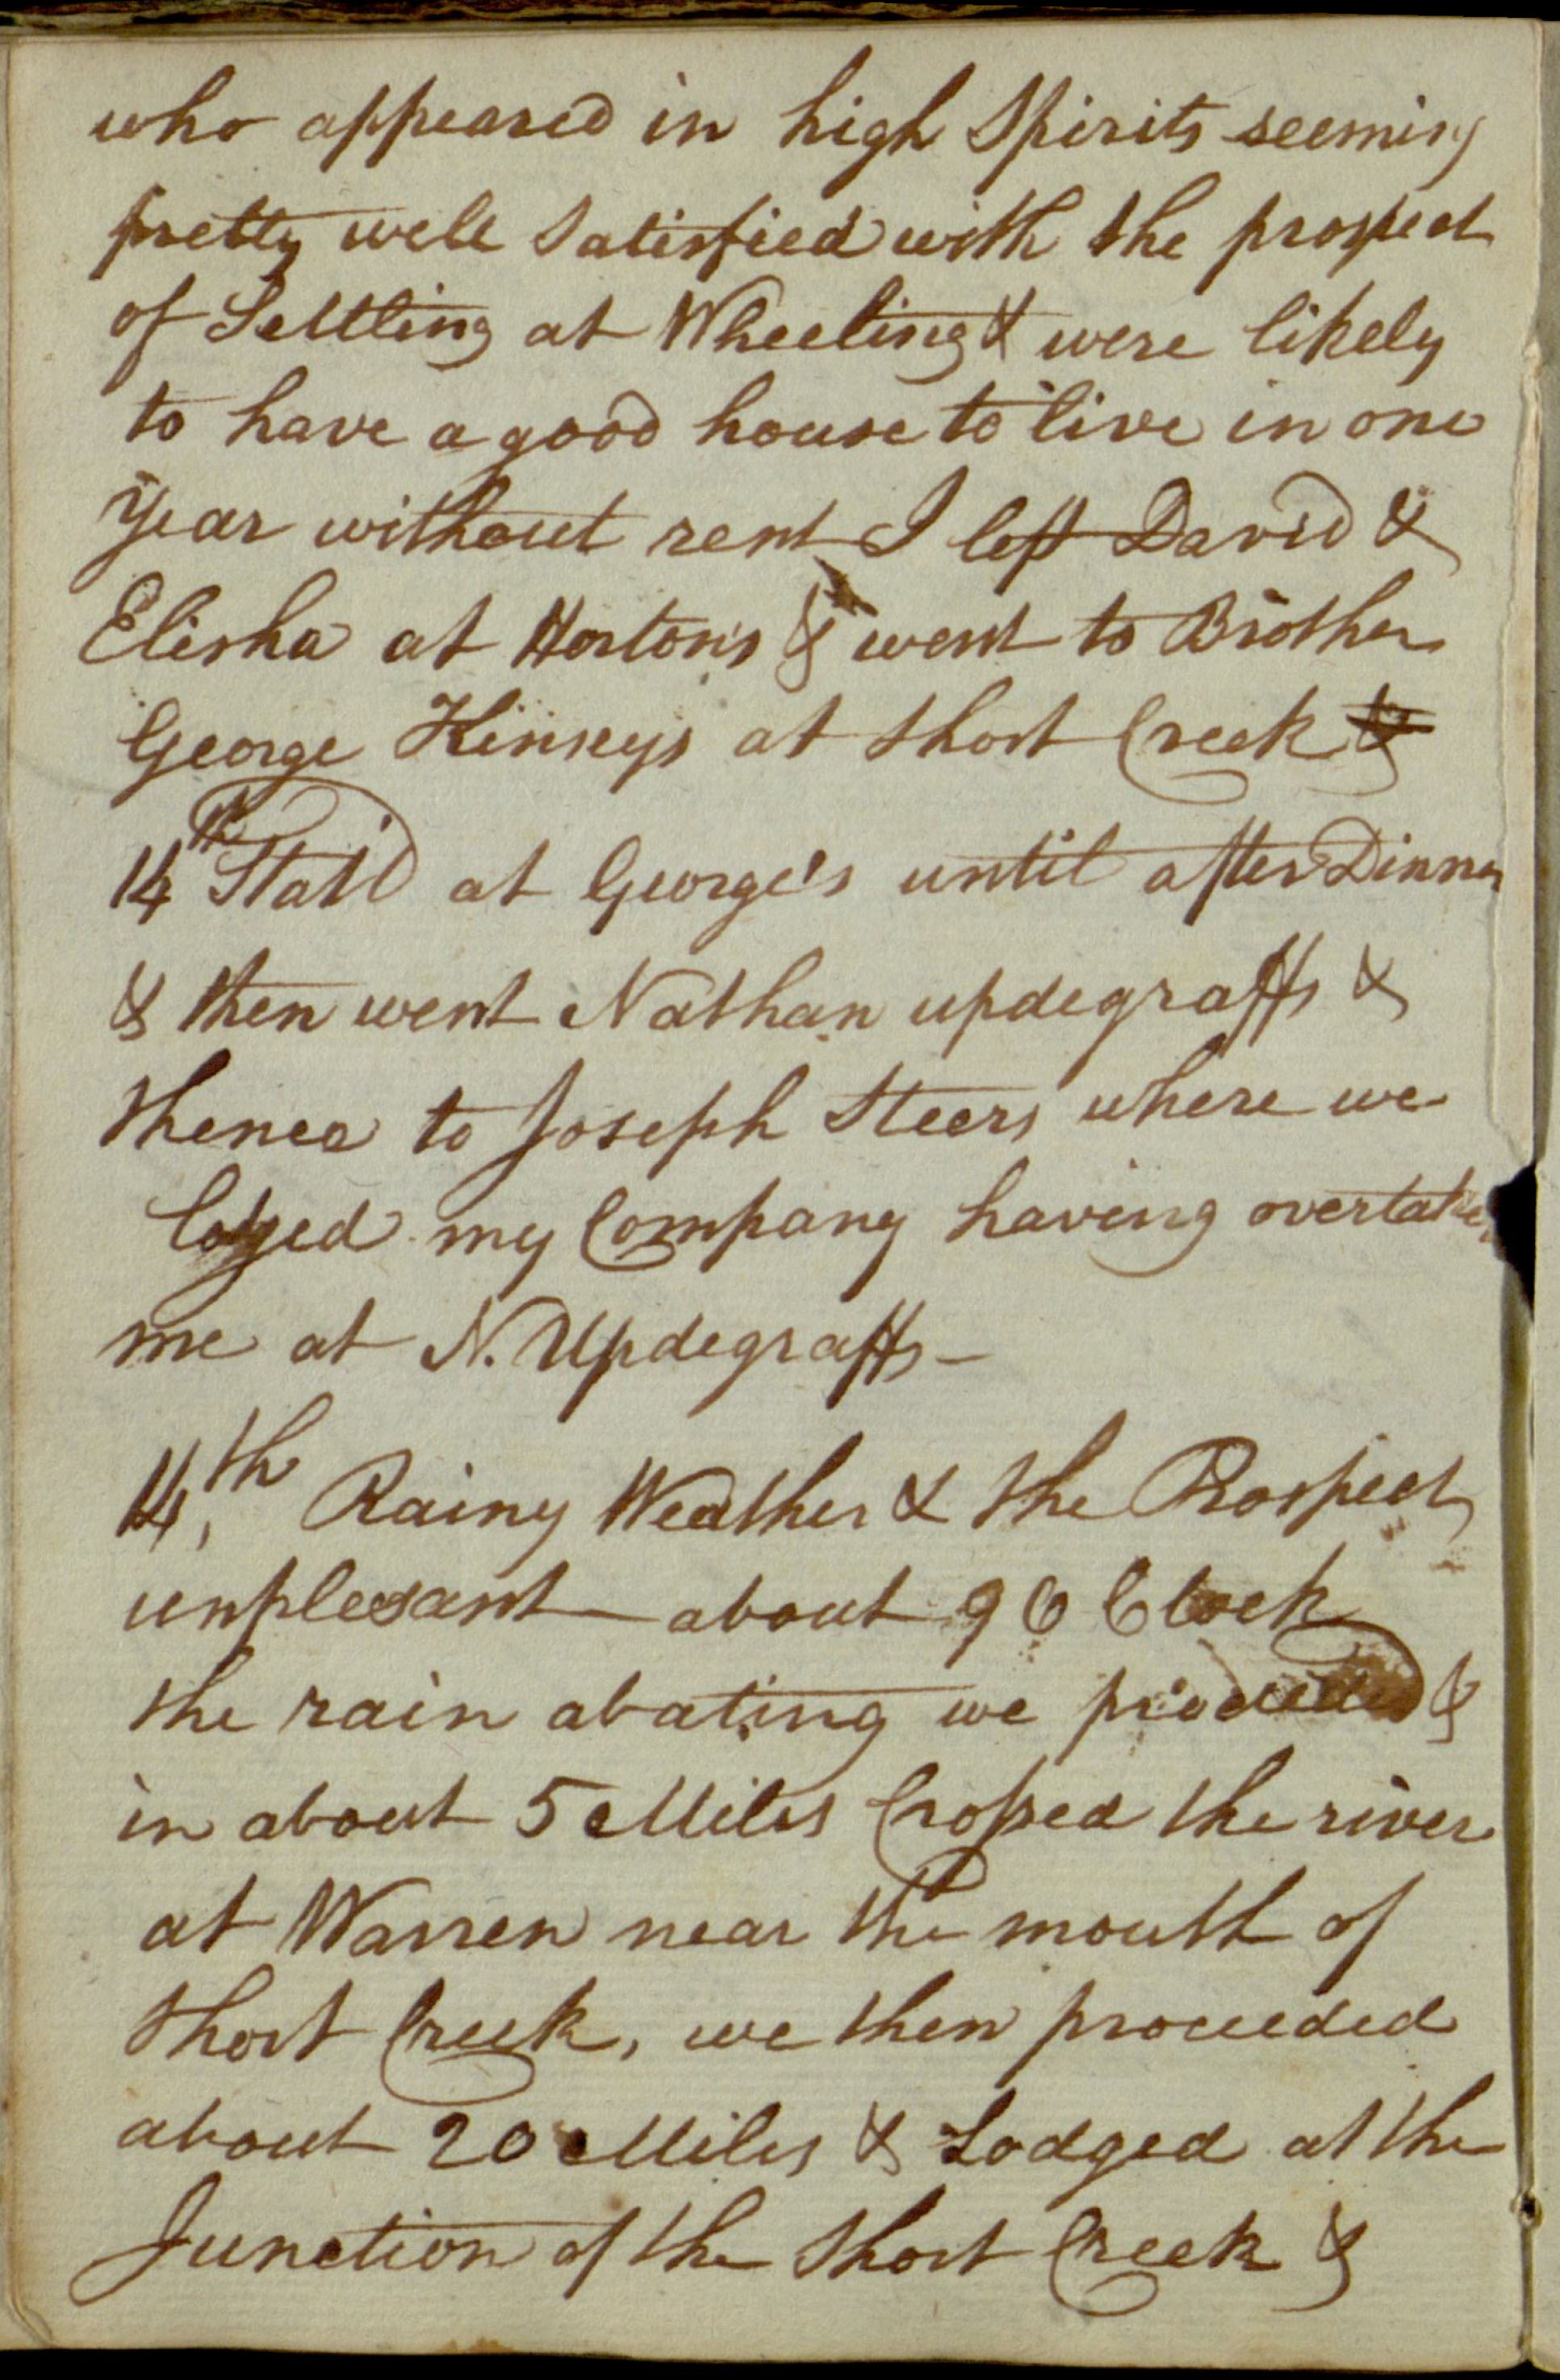 who appeared in high Spirits seeming
pretty well Satisfied with the prospect
of Settling at Wheeling & were likely
to have a good house to live in one
Year without rent I left David &
Elisha at Hortons & went to Brother
George Kinseys at Short Creek &
14th Staid at George's until after Dinner
& then went Nathan updegraffs &
thence to Joseph Steers where we
lodged my Company having overtaken
me at N. Updegraffs –
14,th Rainy Weather & the Prospect
unplesant — about 9 O Clock
the rain abating we proceeded &
in about 5 Miles Crossed the river
at Warren near the mouth of
Short Creek, we then proceeded
about 20 Miles & Lodged at the
Junction of the Short Creek &